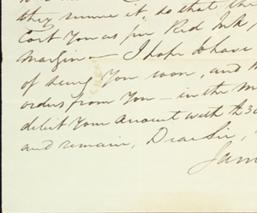 they summe it, so that the
tort You as per Red Ink,
Margin — I hope to have
of seeing You soon, and
orders from You — in the
debit Your Account with the
and remain, Dear Sir,